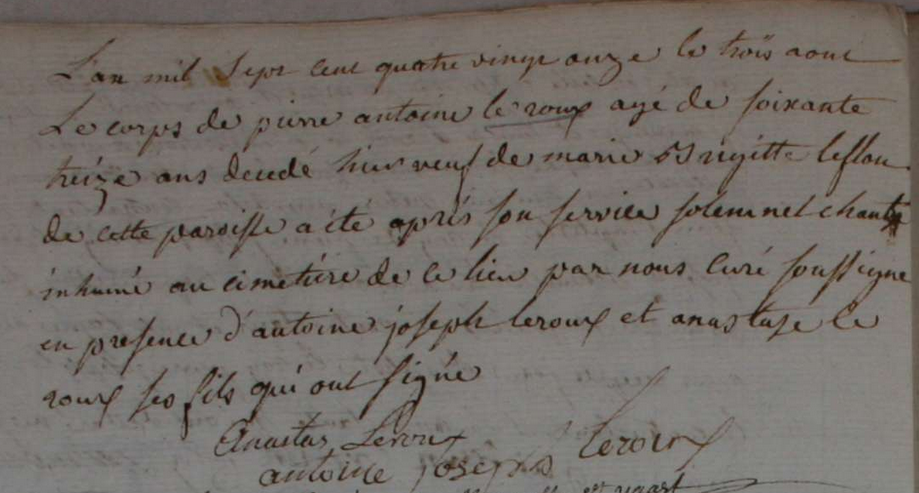 L'an mil sept cent quatre vingt onze le trois aout
Le corps de pierre antoine le roux agé de soixante
treize ans decedé hier veuf de marie Brigitte leflon
de cette paroisse a éte aprés son service solemnel chanté
inhumé au cimetiére de ce lieu par nous curé soussigné
en presence d'antoine joseph leroux et anastase le
roux ses fils qui ont signée
Anastas Leroux
antoine joseph Leroux